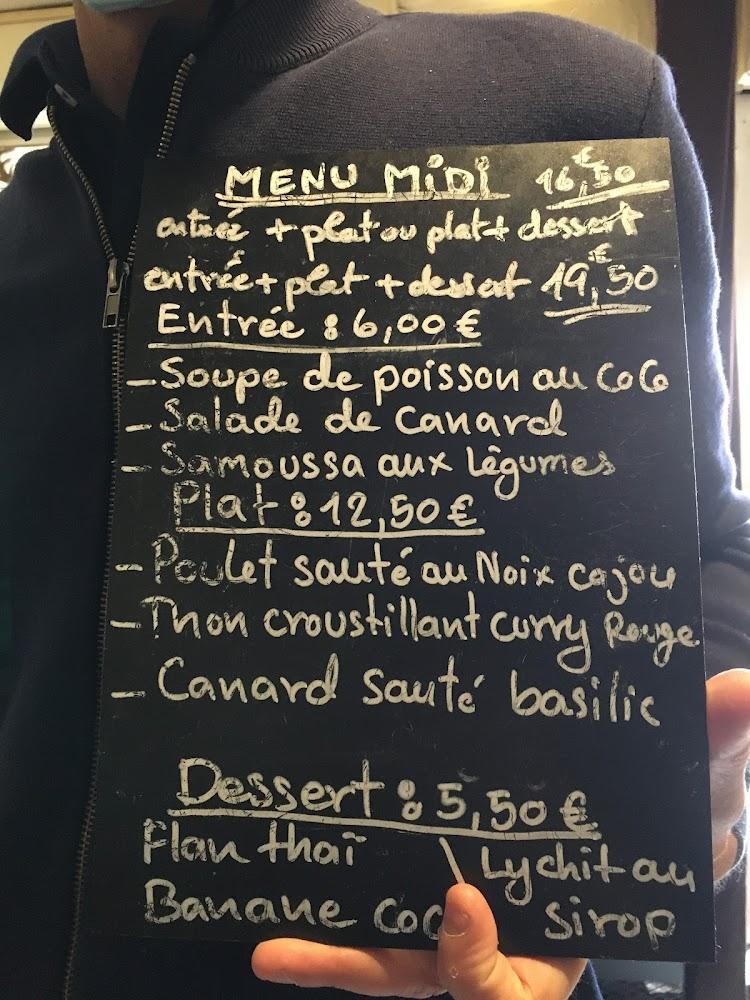 MENU MIDI 16€,50
entrée + plat ou plat + dessert
entrée + plat + dessert 19€,50
Entrée : 6,00 €
- Soupe de poisson au CoCo
- Salade de Canard
- Samoussa aux Légumes
Plat : 12,50 €
- Poulet sauté au Noix cajou
- Thon croustillant curry Rouge
- Canard sauté basilic
Dessert : 5,50 €
Flan thaï \ Lychit au
Banane coc sirop